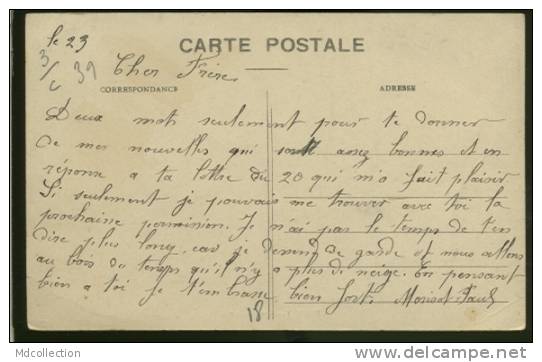 le 23
CARTE POSTALE
3/c 39
Cher Frère
CORRESPONDANCE
ADRESSE
Deux mots seulement pour te donner
de mes nouvelles qui sont assez bonnes et en
réponse a ta lettre du 20 qui m'a fait plaisir
Si seulement je pouvais me trouver avec toi la
prochaine permission. Je n'ai pas le temps de t'en
dire plus long car je de garde et nous allons
au bois du temps qu'il n'y a plus de neige. En pensant
bien a toi je t'embrasse bien fort. Paul
18
Mdcollection
http://france.delcampe.net